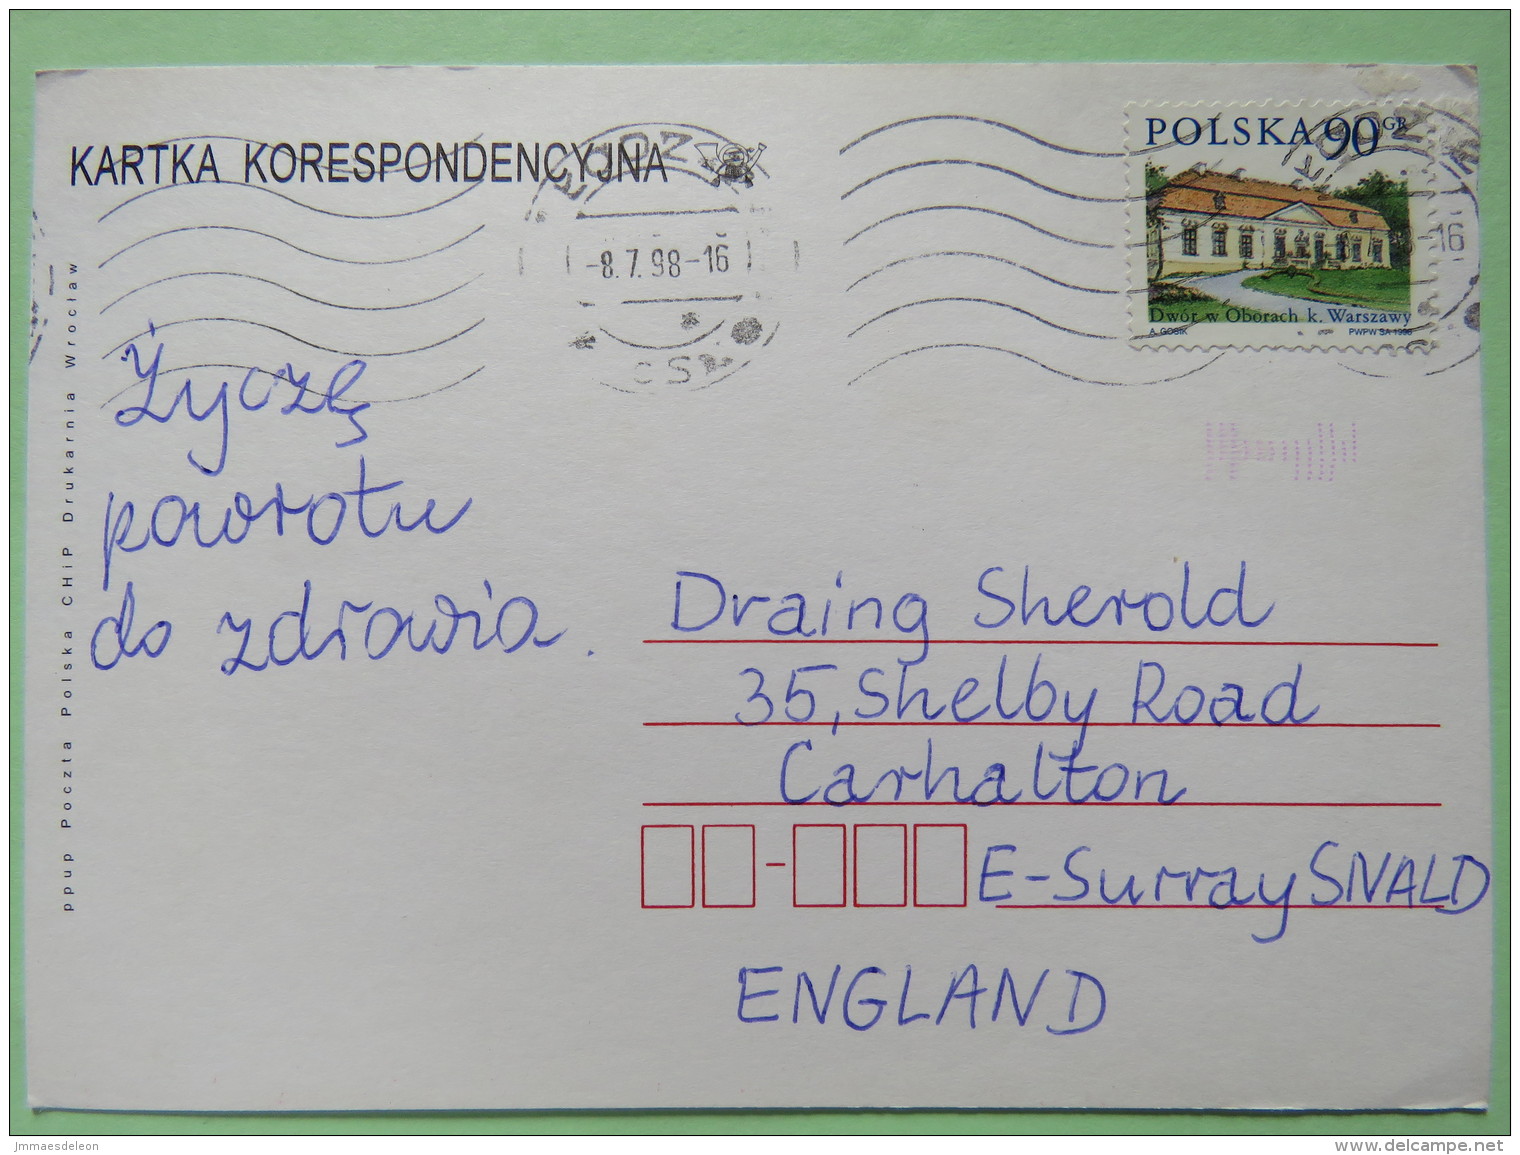 KARTKA KORESPONDENCYJNA
POLSKA 90 GR
Dwór w Oborach k. Warszawy
A. GOSIK PWPW SA 1998
-8.7.98-16
16
ppup Poczta Polska CHiP Drukarnia Wrocław
Życzę
powrotu
do zdrowia.
Draing Sherold
35, Shelby Road
Carhalton
E-Surray SNALD
ENGLAND
jmmaesdeleon
www.delcampe.net